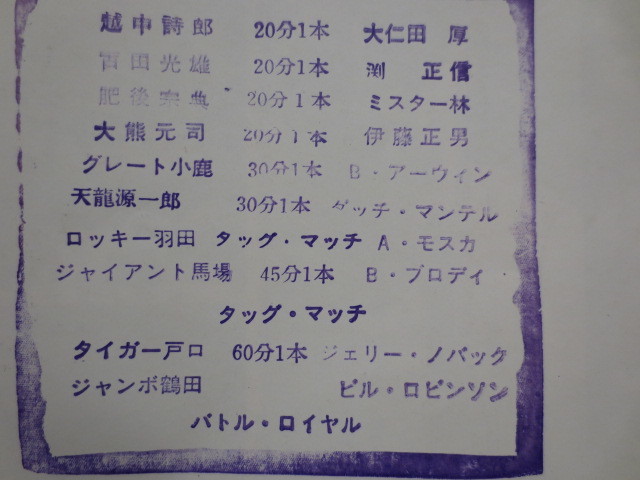 越中詩郎 20分1本 大仁田 厚
百田光雄 20分1本 渕 正信
肥後宗典 20分1本 ミスター林
大熊元司 20分1本 伊藤正男
グレート小鹿 30分1本 B・アーウィン
天龍源一郎 30分1本 ダッチ・マンテル
ロッキー羽田 タッグ・マッチ A・モスカ
ジャイアント馬場 45分1本 B・ブロディ
タッグ・マッチ
タイガー戸口 60分1本 ジェリー・ノバック
ジャンボ鶴田 ビル・ロビンソン
バトル・ロイヤル